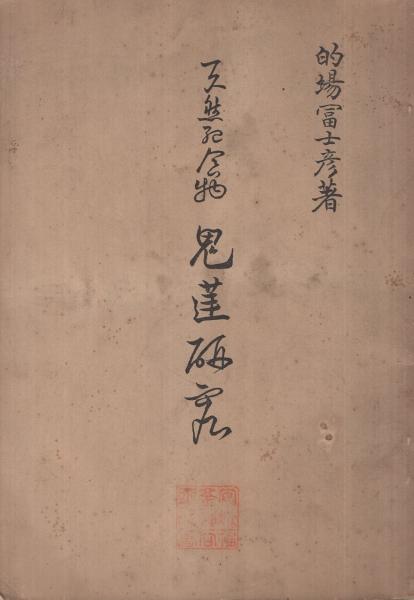 的場冨士彦著
天然記念物 鬼蓮研究